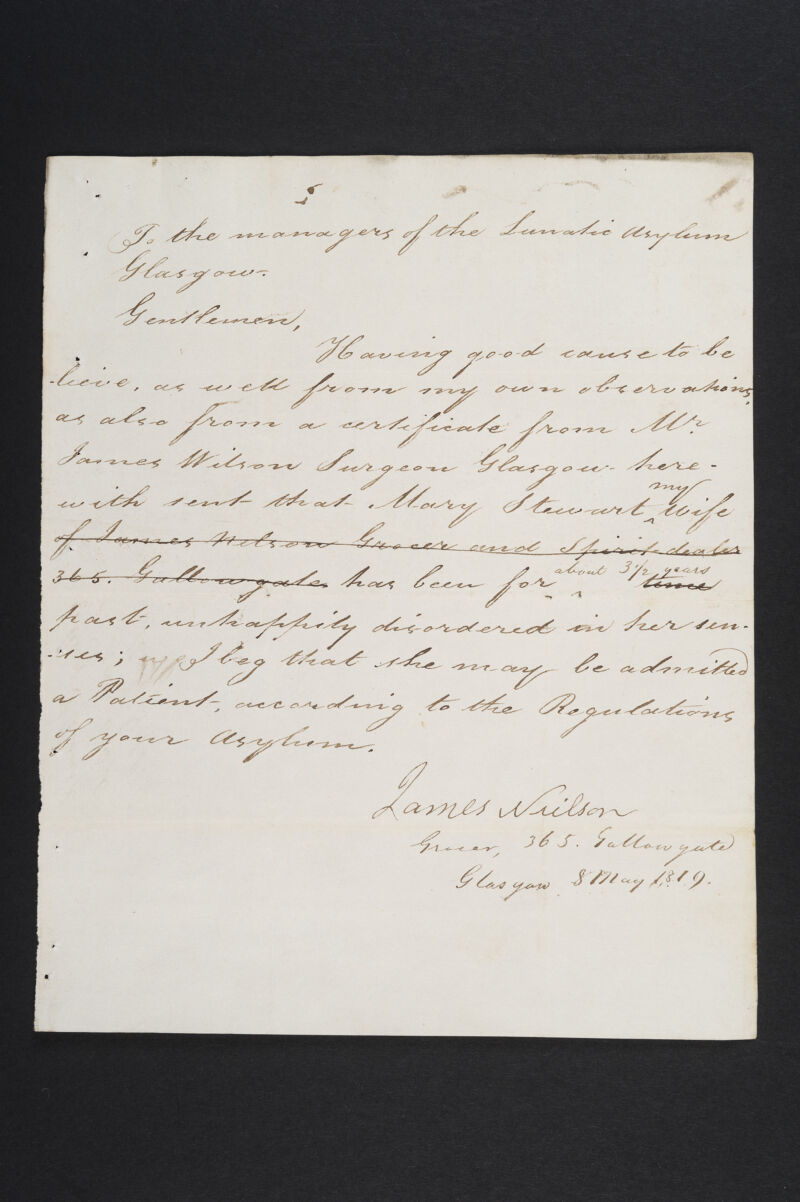 To the managers of the Lunatic Asylum
Glasgow.
Gentlemen,
Having good cause to be
-lieve, as well from my own observations,
as also from a certificate from Mr.
James Wilson Surgeon Glasgow - here-
with sent that Mary Stewart my wife
of James Nelson Grocer and Spirit dealer
365. Gallowgate has been for about 3 1/2 years time
past, unhappily disordered in her sen-
-ses; I beg that she may be admitted
a Patient, according to the Regulations
of your Asylum.
James Neilson
Grocer, 365. Gallowgate
Glasgow 8 May 1819.